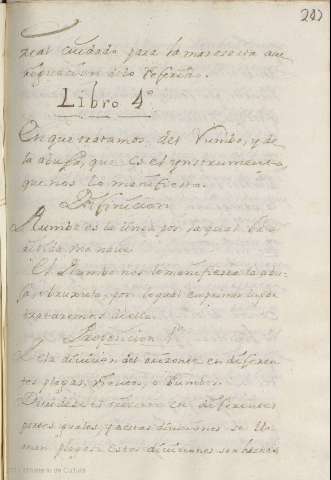 real cuidado para la mas esacta ave
riguacion de lo referido.
Libro 4º
En que tratamos del Rumbo, y de
la abuja, que es el ynstrumento
que nos lo manifiesta.
Difinicion
Rumbo es la linea por la qual
nave
El Rumbo nos lo manifiesta la abu-
ja, por lo qual en primer lugar
trataremos de ella.
Proposicion 1ª
De la division del orizonte en diferen
tes plagas, vientos, o Rumbos.
el orizonte en diferentes
partes yguales, y estas diviciones se lla
man plagas: estas diviciones son hechas
Ministerio de Cultura